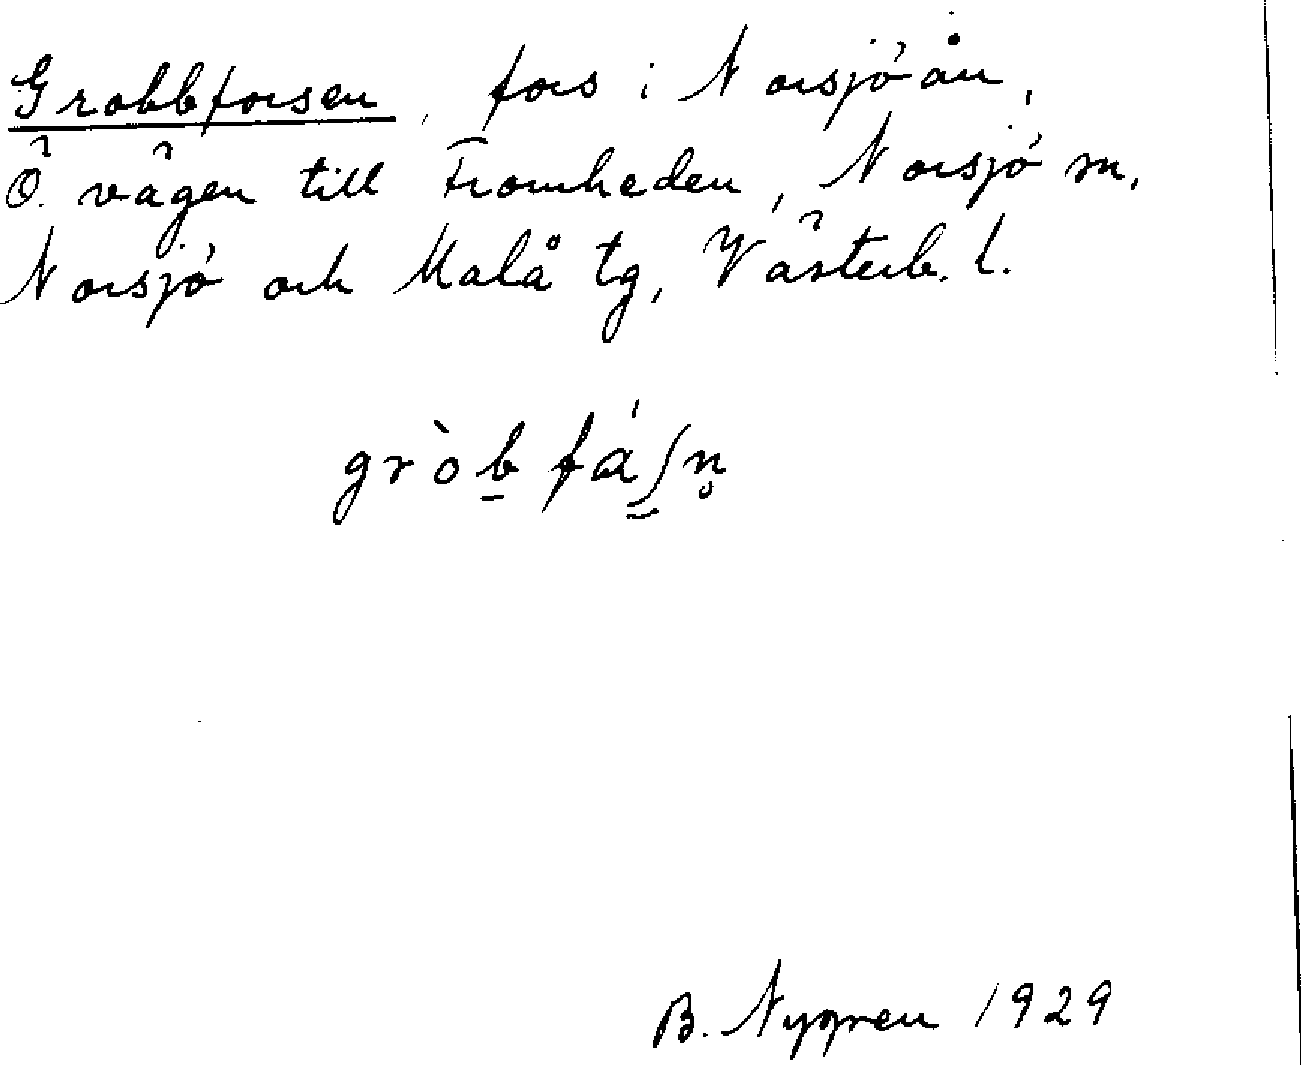 Grabbforsen, fors i Norsjöån,
Ö. vägen till Fromheden, Norsjö sn,
Norsjö och Malå tg, Västerb. l.
gròb fáʃn̥
B. Nygren 1929